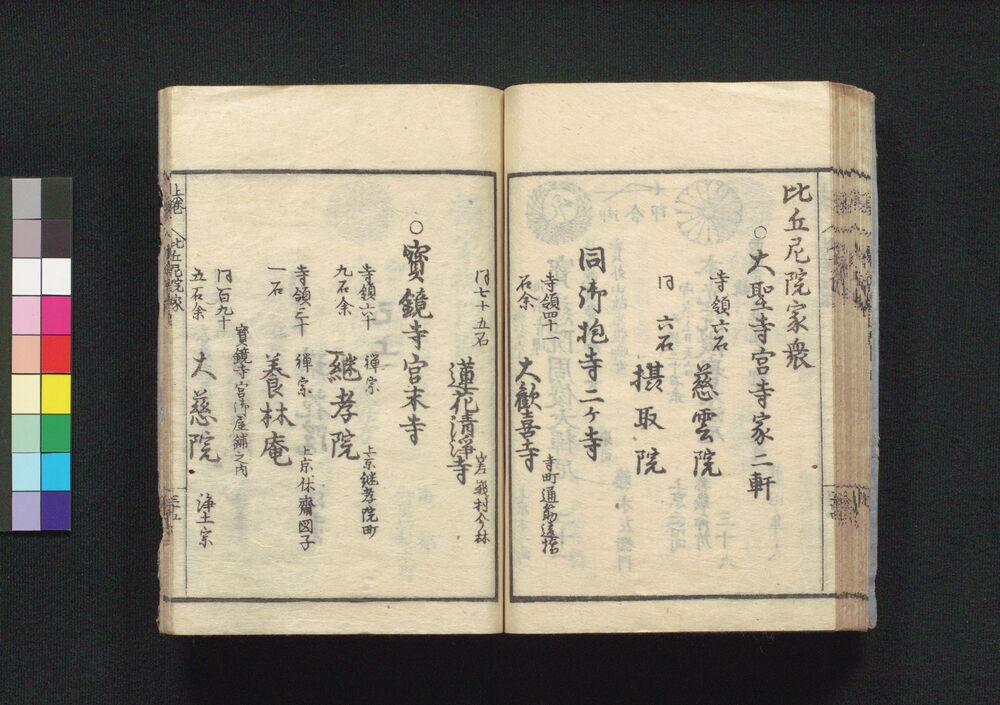 比丘尼院家衆
○大聖寺宮寺家二軒
寺領六石 慈雲院
同 六石 摂取院
同御抱寺二ヶ寺
寺領四十一石余 大歓喜寺 寺町通
同七十五石 蓮花清浄寺 嵯峨村今林
○寳鏡寺宮末寺
寺領六十九石余 禅宗 継孝院 上京継孝院町
寺領三十一石 禅宗 養林庵 上京休齋図子
寳鏡寺宮御屋鋪之内
同百九十五石余 大慈院 浄土宗
上巻 比丘尼院家 三十五